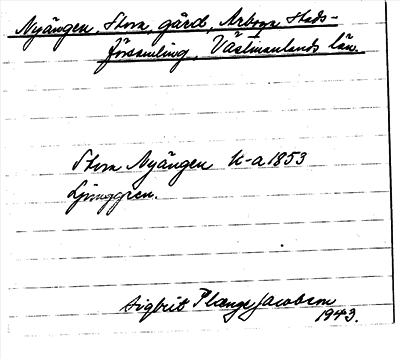 Nyängen, Stora, gård, Arboga Stads-
församling, Västmanlands län.
Stora Nyängen K-a 1853
Ljunggren.
Sigbrit Plænge Jacobson
1943.